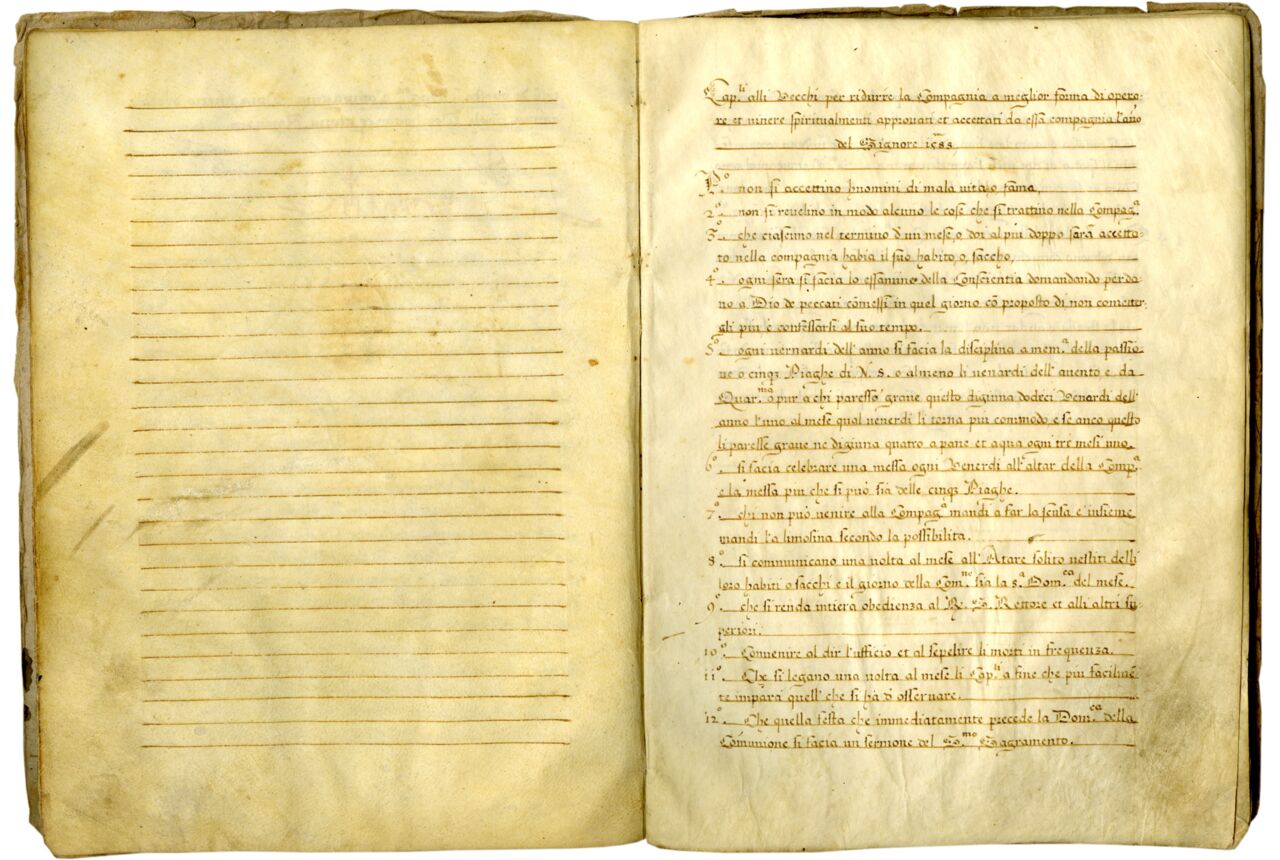 Cap.li alli Vecchi per ridurre la Compagnia a meglior forma di opero-
re et vivere spiritualmenti approvati et accettati da essa compagnia l'año
del Signore 1588
P.o non si accettino huomini di mala vita, o fama,
2.o non si revelino in modo alcuno le cose che si trattino nella Compag.a
3.o che ciascuno nel termino d'un mese, o doi al piu doppo sarà accetta-
to nella compagnia habia il suo habito, o, saccho,
4.o ogni sera si facia lo essamine della Conscientia domandando perdo-
no a Dio de peccati cōmessi in quel giorno cō proposto di non cometter-
gli piu e confessarsi al suo tempo.
5.o ogni vernardi dell'anno si facia la disciplina a mem.a della passio-
ne o cinq3 Piaghe di N. S. o almeno li venardi dell'avento, e da
Quar.ma o pur a chi paresse grave questo digiuna dodeci Venardi dell'
anno l'uno al mese qual venerdi li torna piu commodo, e se anco questo
li paresse grave ne digiuna quatro a pane et aqua ogni tre mesi uno.
6.o si facia celebrare una messa ogni Venerdi all'altar della Comp.a
e la messa piu che si può sia delle cinq3 Piaghe.
7.o chi non può venire alla Compag.a mandi a far la scusa e insieme
mandi l'a limosina secondo la possibilita.
8.o si communicano una volta al mese all'Atare solito vestiti delli
loro habiti o sacchi e il giorno della Com.ne sia la s.a Dom.ca del mese.
9.o che si renda intiera obedienza al R. S. Rettore et alli altri su-
periori.
10.o Convenire al dir l'ufficio et al sepelire li morti in frequenza.
11.o Che si legano una volta al mese li Cap.li a fine che piu facilmē-
te impara quell'che si hà d'osservare.
12.o Che quella festa che immediatamente precede la Dom.ca della
Comunione si facia un sermone del S.mo Sagramento.